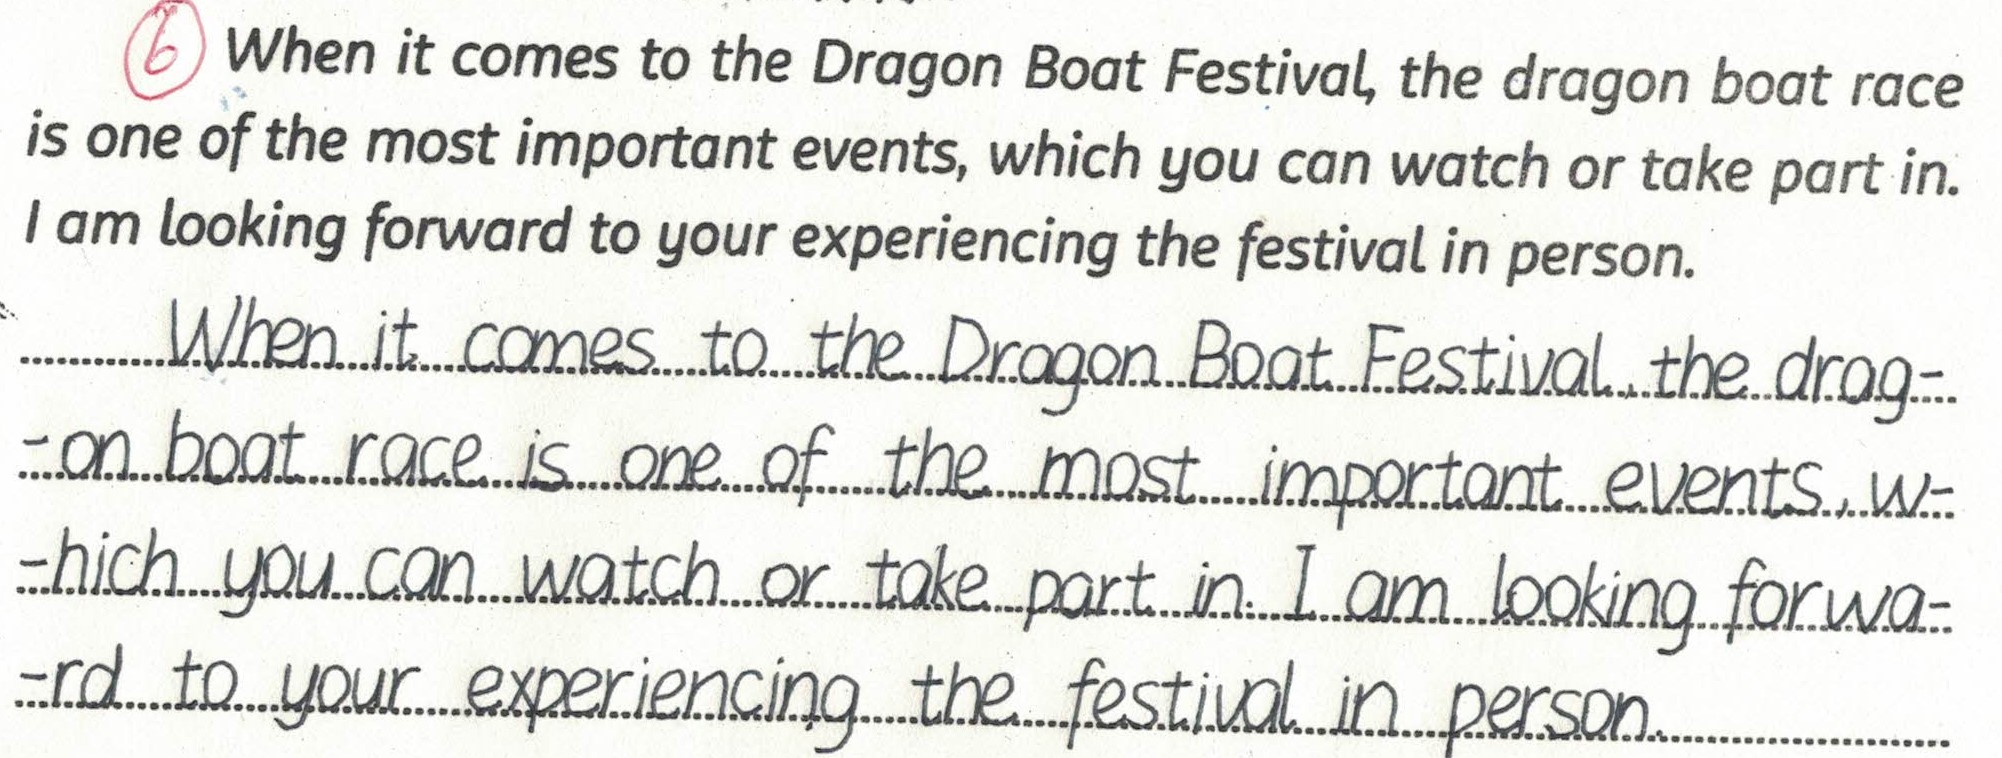 6 When it comes to the Dragon Boat Festival, the dragon boat race
is one of the most important events, which you can watch or take part in.
I am looking forward to your experiencing the festival in person.
When it comes to the Dragon Boat Festival, the drag-
-on boat race is one of the most important events, w-
-hich you can watch or take part in. I am looking forwa-
-rd to your experiencing the festival in person.